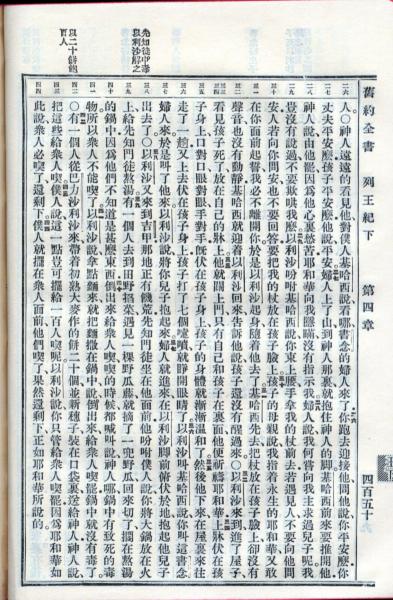 舊約全書 列王紀下 第四章 四百五十
人○神人遠遠的看見他對僕人基哈西說看哪書念的婦人來了你跑去迎接他問他說你平安麼你
丈夫平安麼孩子平安麼他說平安婦人上了山到神人那裏就抱住神人的脚基哈西前來要推開他
神人說由他罷因爲他心裏愁苦耶和華向我隱瞞沒有指示我婦人說我何嘗向我主求過兒子呢我
豈沒有說過不要欺哄我麼以利沙吩咐基哈西說你束上腰手拿我的杖前去若遇見人不要向他問
安人若向你問安也不要回答要把我的杖放在孩子臉上孩子的母親說我指着永生的耶和華又敢
在你面前起誓我必不離開你於是以利沙起身隨着他去了基哈西先去把杖放在孩子臉上卻沒有
聲音也沒有動靜基哈西就迎着以利沙回來告訴他說孩子還沒有醒過來○以利沙來到進了屋子
看見孩子死了放在自己的牀上他就關上門只有自己和孩子在裏面他便祈禱耶和華上牀伏在孩
子身上口對口眼對眼手對手旣伏在孩子身上孩子的身體就漸漸溫和了然後他下來在屋裏來往
走了一趟又上去伏在孩子身上孩子打了七個噴嚏就睜開眼睛了以利沙叫基哈西說你叫這書念
婦人來於是叫了他來以利沙說將你兒子抱起來婦人就進來在以利沙脚前俯伏於地抱起他兒子
出去了○以利沙又來到吉甲那地正有饑荒先知門徒坐在他面前他吩咐僕人說你將大鍋放在火
先知徒中毒
以利沙解之
上給先知門徒熬湯有一個人去到田野掐菜遇見一棵野瓜藤就摘了一兜野瓜回來切了擱在熬湯
的鍋中因爲他們不知道是甚麼東西倒出來給衆人喫喫的時候都喊叫說神人哪鍋中有致死的毒
物所以衆人不能喫了以利沙說拿點麵來就把麵撒在鍋中說倒出來給衆人喫罷鍋中就沒有毒了
以二十餅飽
百人
○有一個人從巴力沙利沙來帶着初熟大麥作的餅二十個並新穗子裝在口袋裏送給神人神人說
把這些給衆人喫僕人說這一點豈可擺給一百人喫呢以利沙說你只管給衆人喫罷因爲耶和華如
此說衆人必喫了還剩下僕人就擺在衆人面前他們喫了果然還剩下正如耶和華所說的